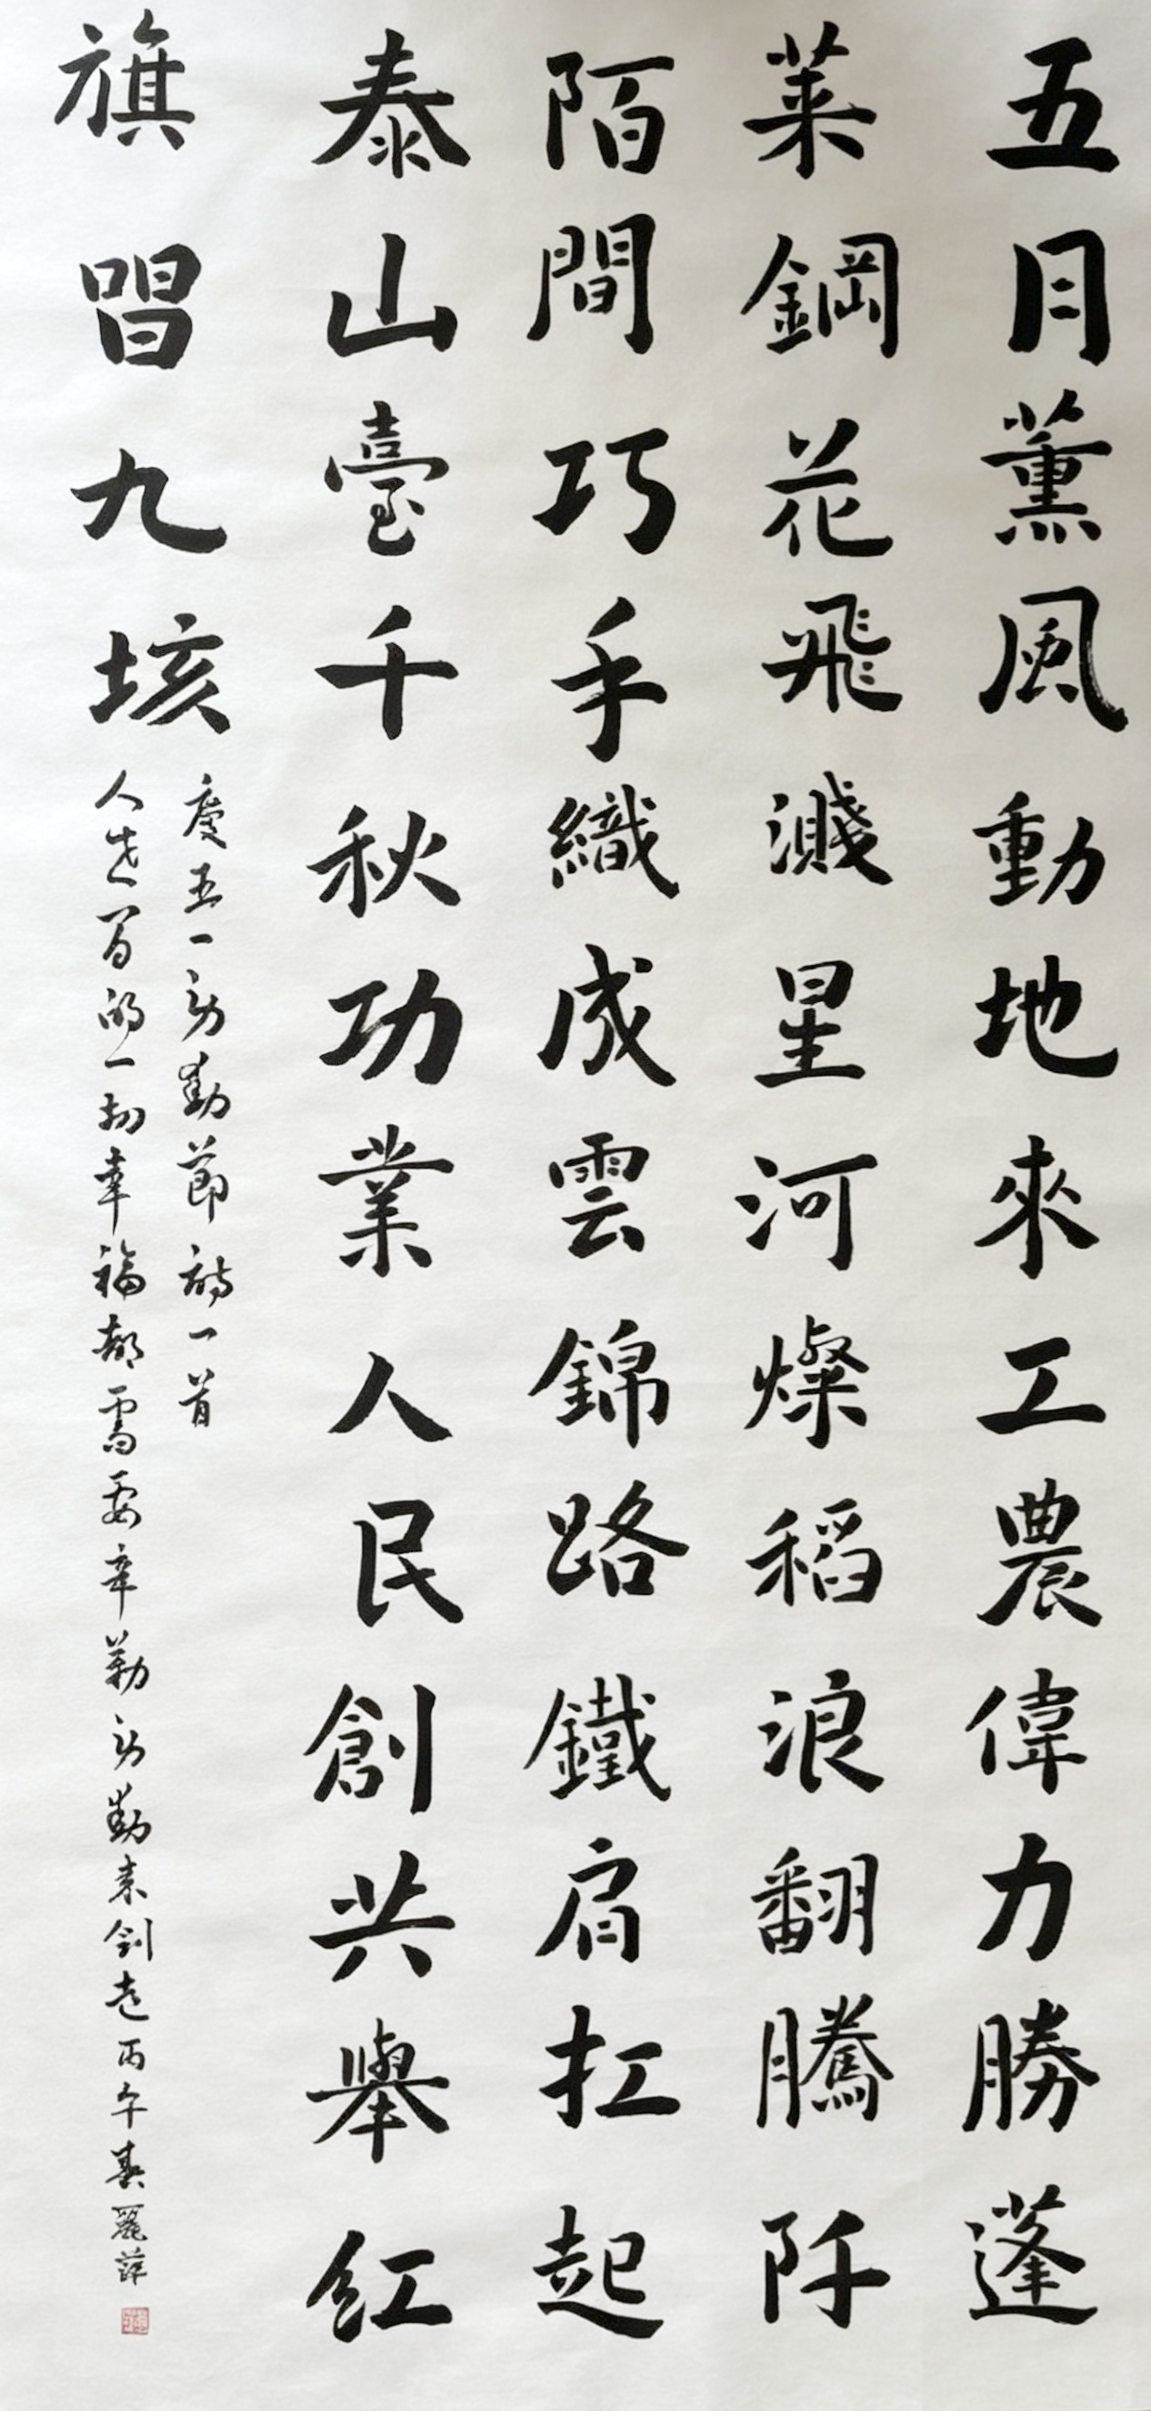 五月薰風動地來工農偉力勝蓬
萊鋼花飛濺星河燦稻浪翻騰阡
陌間巧手織成雲錦路鐵肩扛起
泰山臺千秋功業人民創共舉紅
旗昌九垓
慶五一勞動節詩一首
人世間的一切幸福都需要辛勤勞動來創造丙午春麗萍